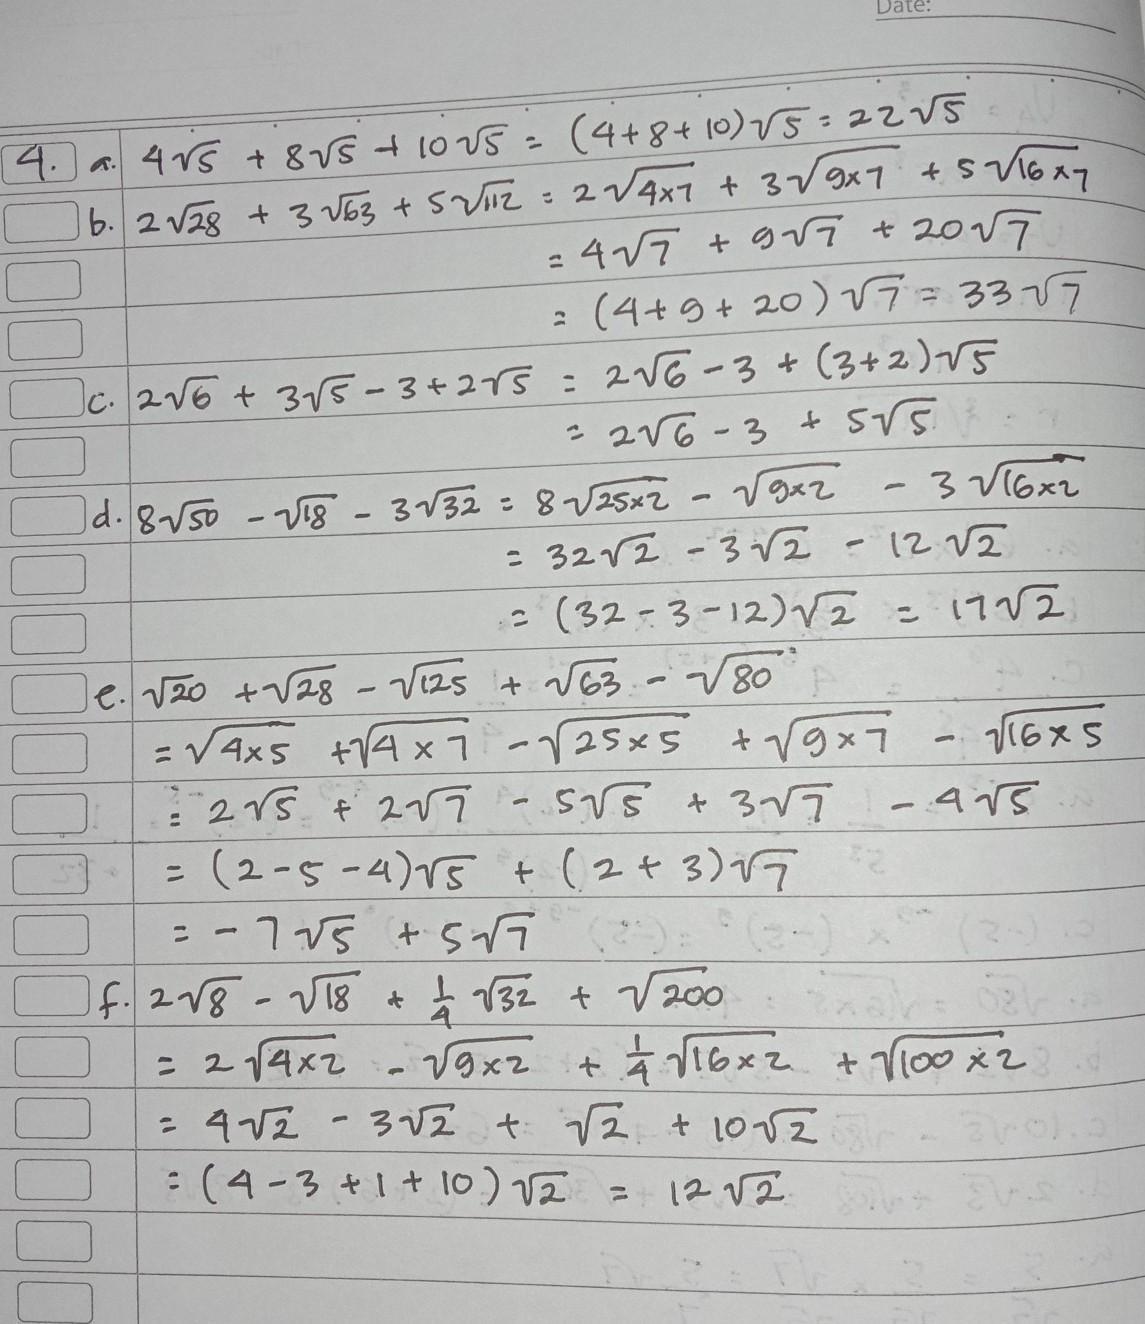 Date:
4. a. 4√5 + 8√5 + 10√5 = (4+8+10)√5 = 22√5
b. 2√28 + 3√63 + 5√112 = 2√4×7 + 3√9×7 + 5√16×7
= 4√7 + 9√7 + 20√7
= (4+9+20)√7 = 33√7
c. 2√6 + 3√5 - 3 + 2√5 = 2√6 - 3 + (3+2)√5
= 2√6 - 3 + 5√5
d. 8√50 - √18 - 3√32 = 8√25×2 - √9×2 - 3√16×2
= 32√2 - 3√2 - 12√2
= (32 - 3 - 12)√2 = 17√2
e. √20 + √28 - √125 + √63 - √80
= √4×5 + √4×7 - √25×5 + √9×7 - √16×5
= 2√5 + 2√7 - 5√5 + 3√7 - 4√5
= (2-5-4)√5 + (2+3)√7
= -7√5 + 5√7
f. 2√8 - √18 + 1/4 √32 + √200
= 2√4×2 - √9×2 + 1/4 √16×2 + √100×2
= 4√2 - 3√2 + √2 + 10√2
= (4-3+1+10)√2 = 12√2